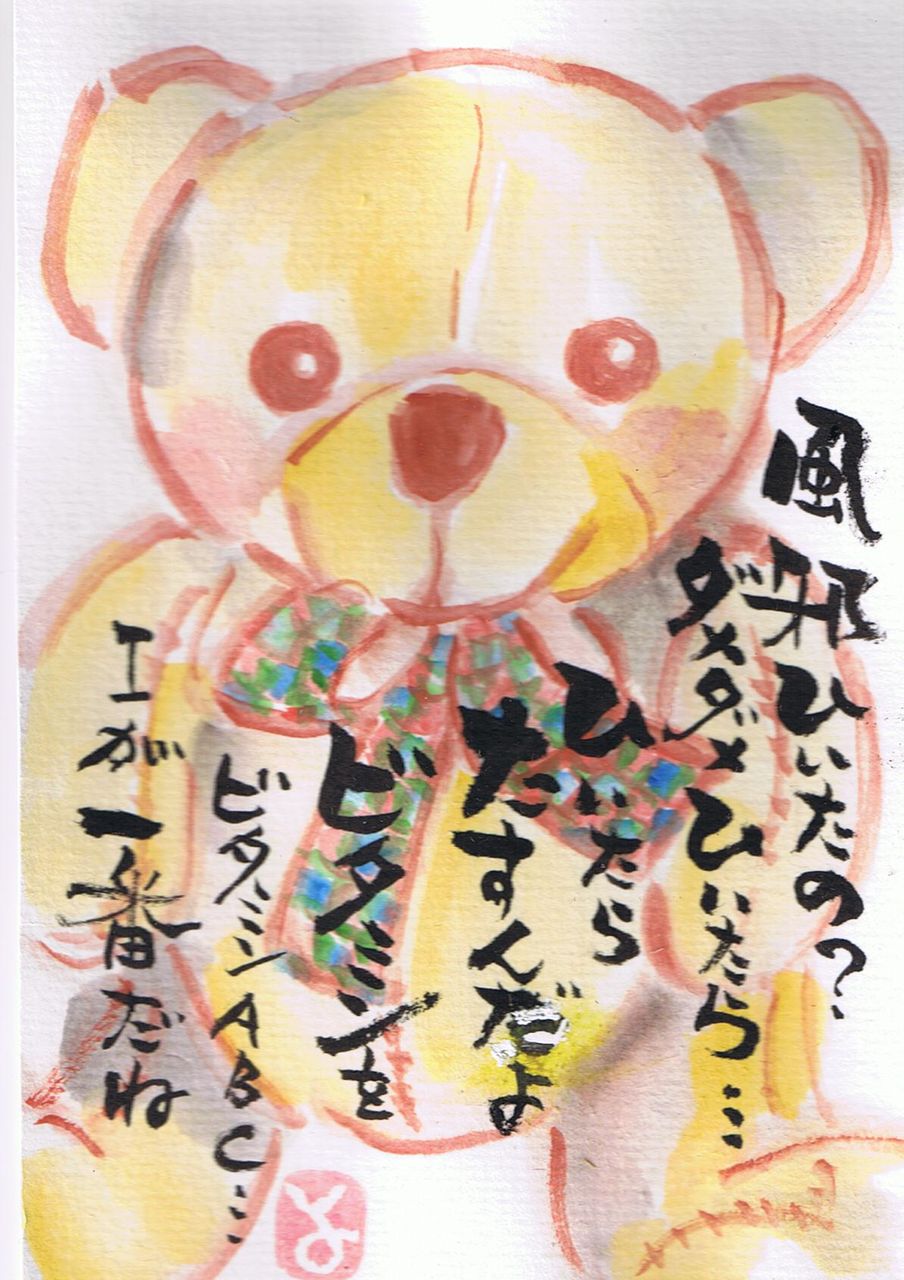 風邪ひいたの?
ダメダメひいたら…
ひいたら
たすんだよ
ビタミンを
ビタミンABC…
エが一番だね
と